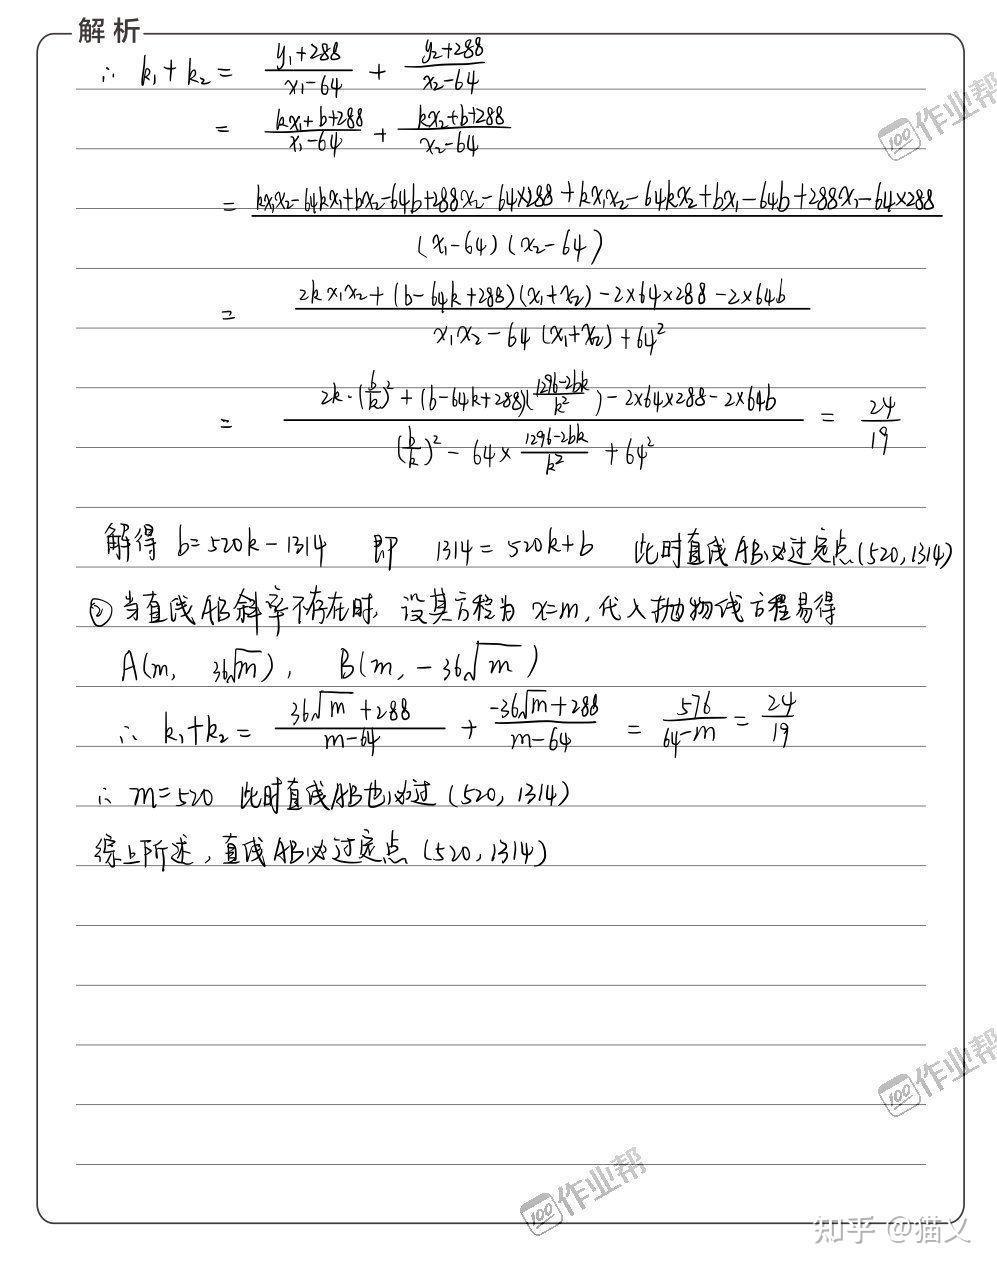 解析
∴ k₁+k₂ = (y₁+288)/(x₁-64) + (y₂+288)/(x₂-64)
= (kx₁+b+288)/(x₁-64) + (kx₂+b+288)/(x₂-64)
= (kx₁x₂-64kx₁+bx₂-64b+288x₂-64×288+kx₁x₂-64kx₂+bx₁-64b+288x₁-64×288)/((x₁-64)(x₂-64))
= (2kx₁x₂+(b-64k+288)(x₁+x₂)-2×64×288-2×64b)/(x₁x₂-64(x₁+x₂)+64²)
= (2k·(b/k)²+(b-64k+288)((1296-2bk)/k²)-2×64×288-2×64b)/((b/k)²-64×(1296-2bk)/k²+64²) = 24/19
解得 b=520k-1314 即 1314=520k+b 此时直线AB必过定点(520,1314)
② 当直线AB斜率不存在时, 设其方程为 x=m, 代入抛物线方程易得
A(m, 36√m), B(m, -36√m)
∴ k₁+k₂ = (36√m+288)/(m-64) + (-36√m+288)/(m-64) = 576/(64-m) = 24/19
∴ m=520 此时直线AB也必过(520,1314)
综上所述, 直线AB必过定点(520,1314)
作业帮
作业帮
作业帮
知乎 @猫义